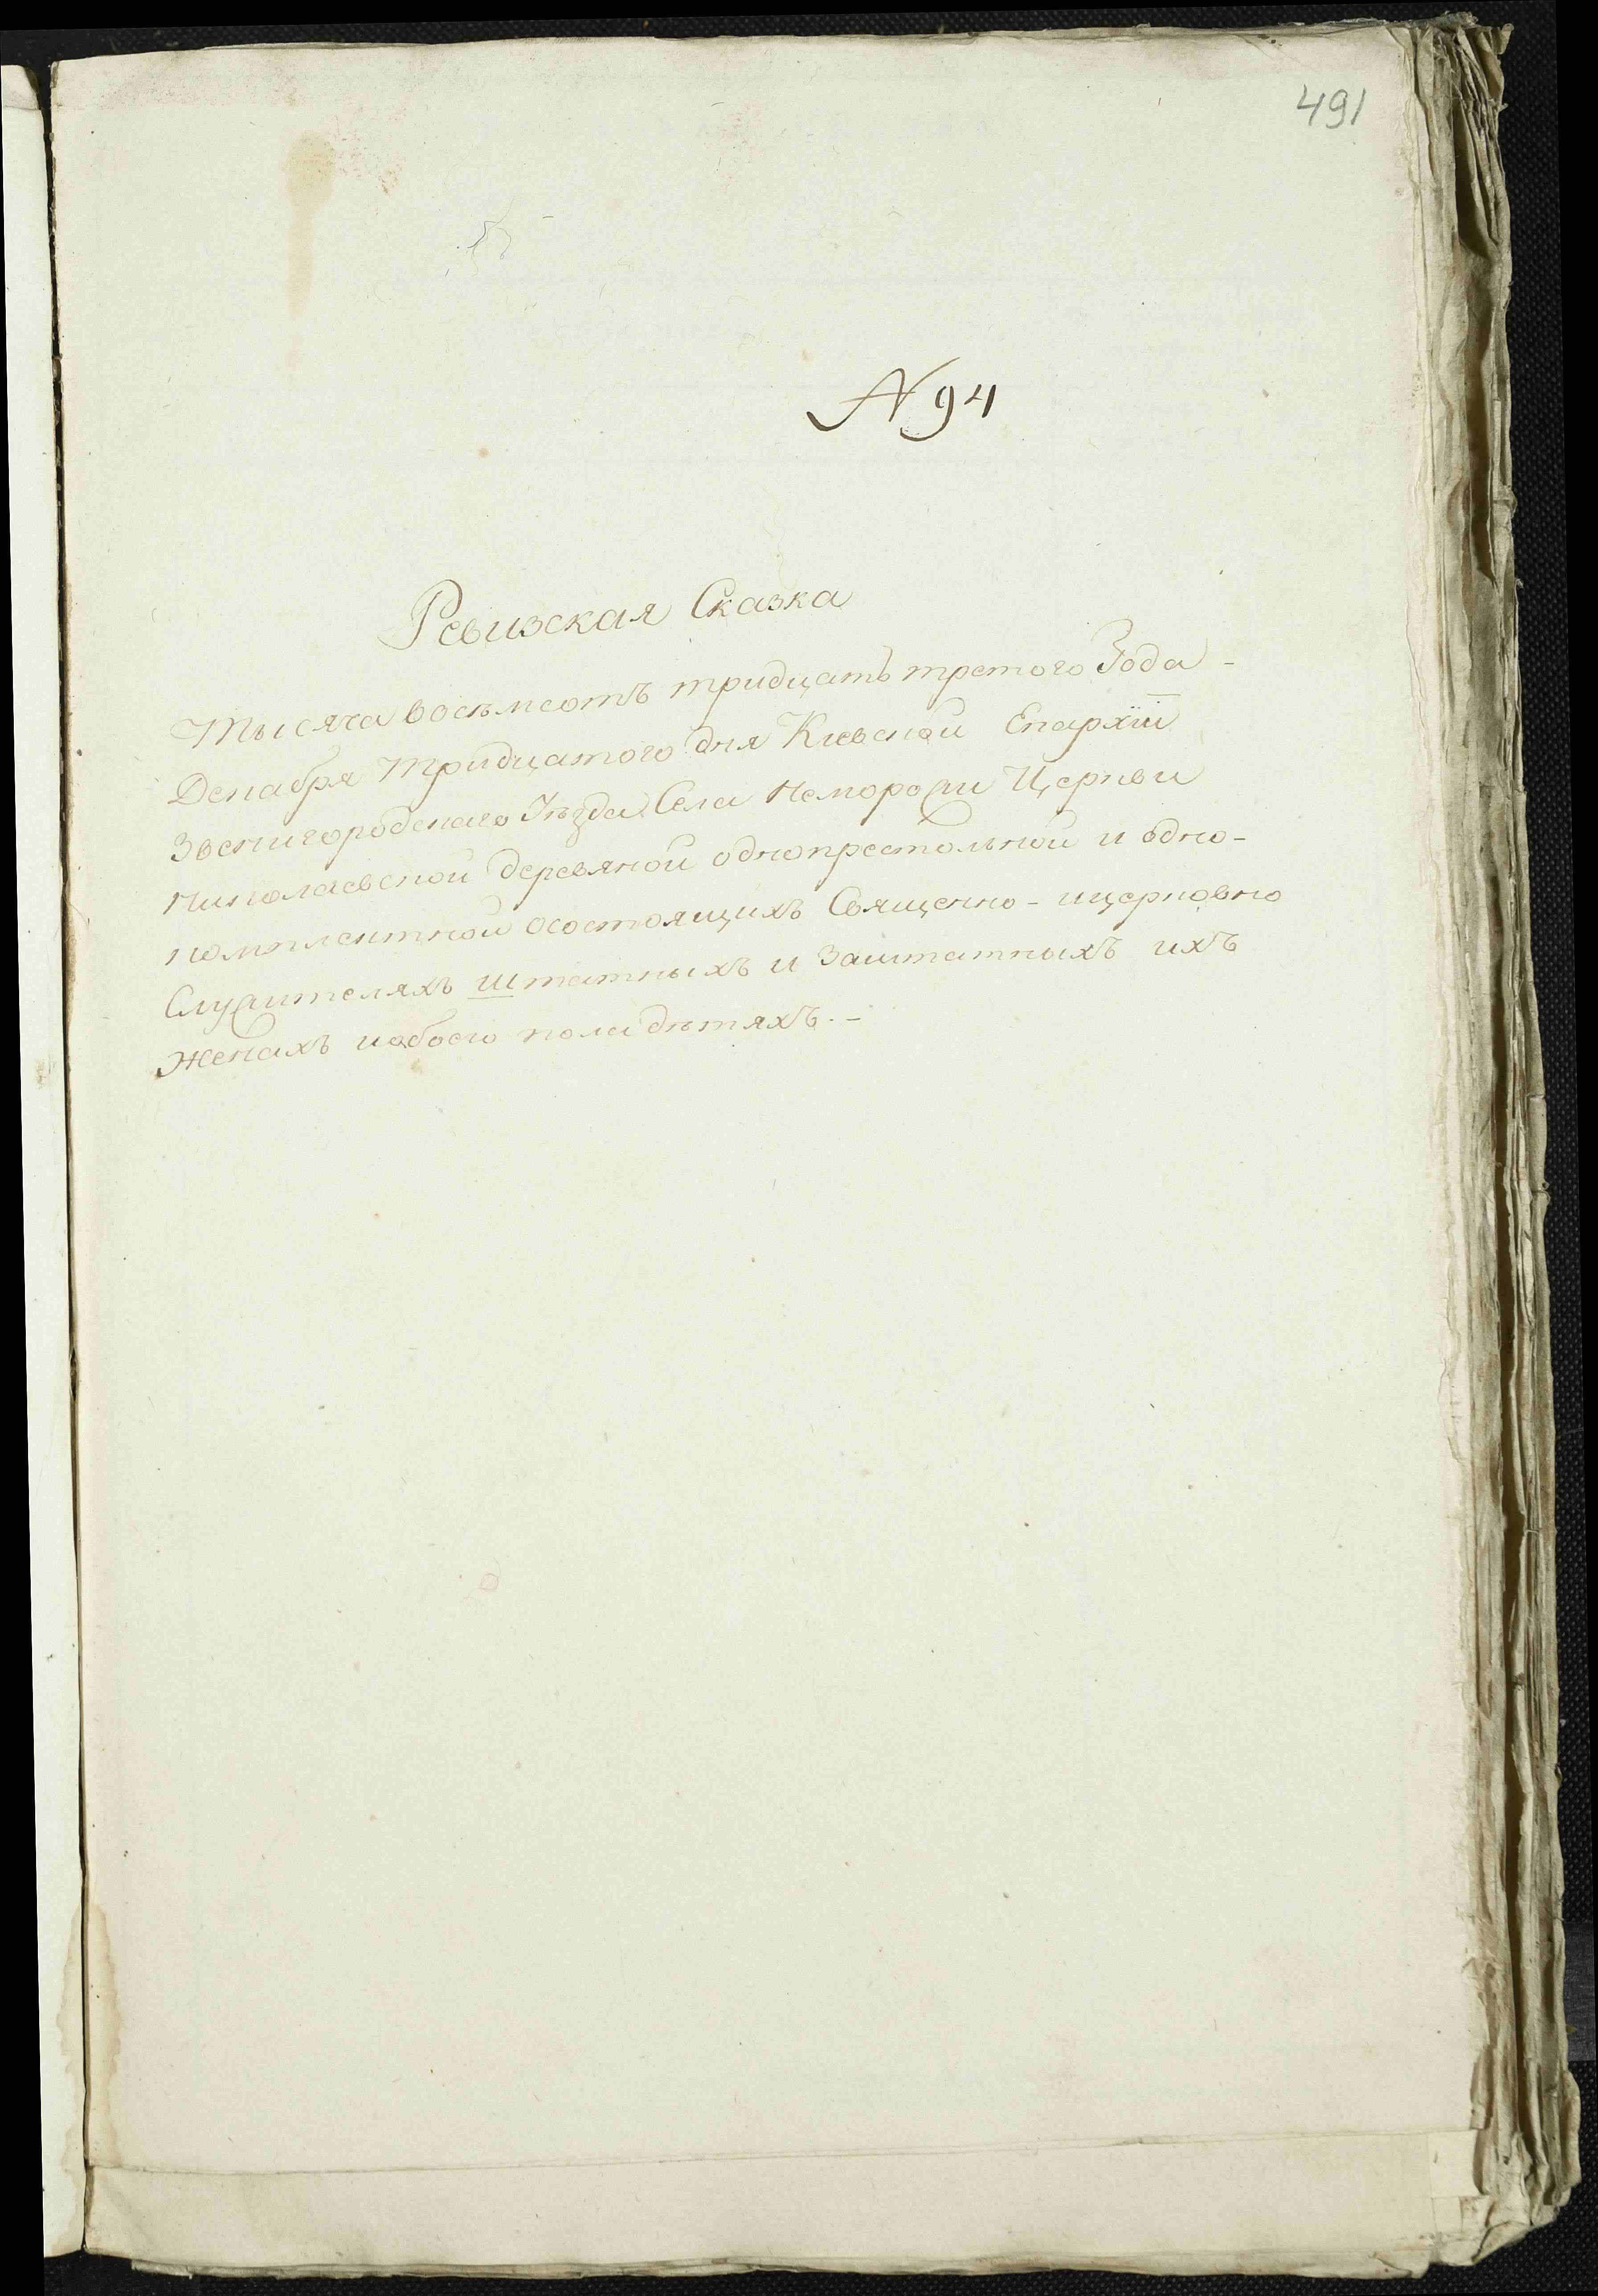 491
N 94
Ревизская Сказка
Тысяча восемсотъ тридцать третого Года -
Декабря тридцатого дня Киевской Епархїи
Звенигородскаго Уѣзда Села Неморожи Церкви
Николаевской деревяной однопрестольной и одно-
комплектной осостоящихъ Священно- ицерковно
Служителяхъ штатныхъ и Заштатныхъ ихъ
женахъ иобоего пола дѣтяхъ. -